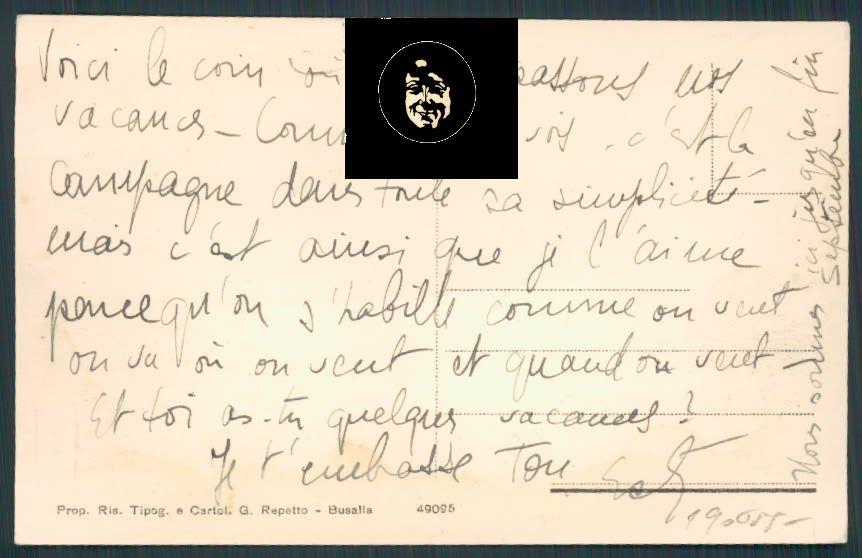 Voici le coin où passons nos
vacances - vois . c'est la
Campagne dans toute sa simplicité -
mais c'est ainsi que je l'aime
parcequ'on s'habille comme on veut
on va où on veut et quand on veut -
Et toi as-tu quelques vacances ?
Je t'embrasse Ton
Nous sommes ici jusqu'en fin
Septembre
Prop. Ris. Tipog. e Cartol. G. Repetto - Busalla 49095